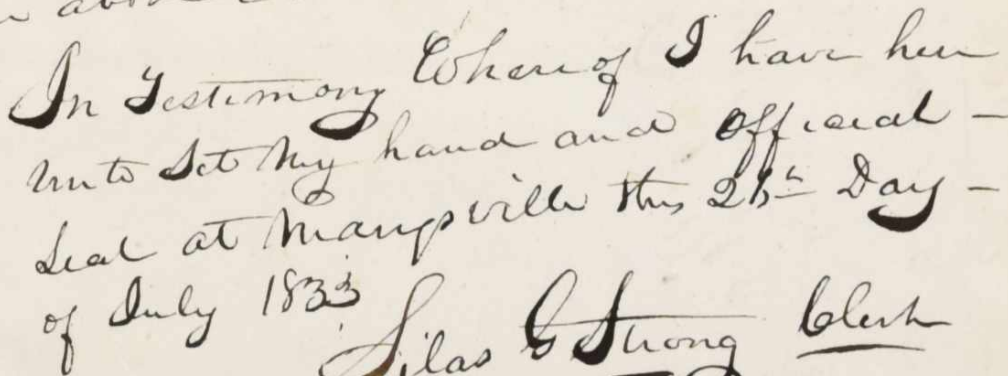 In Testimony Whereof I have here
unto Set My hand and Official –
Seal at Marysville this Day –
of July 1833
Silas G Strong Clerk